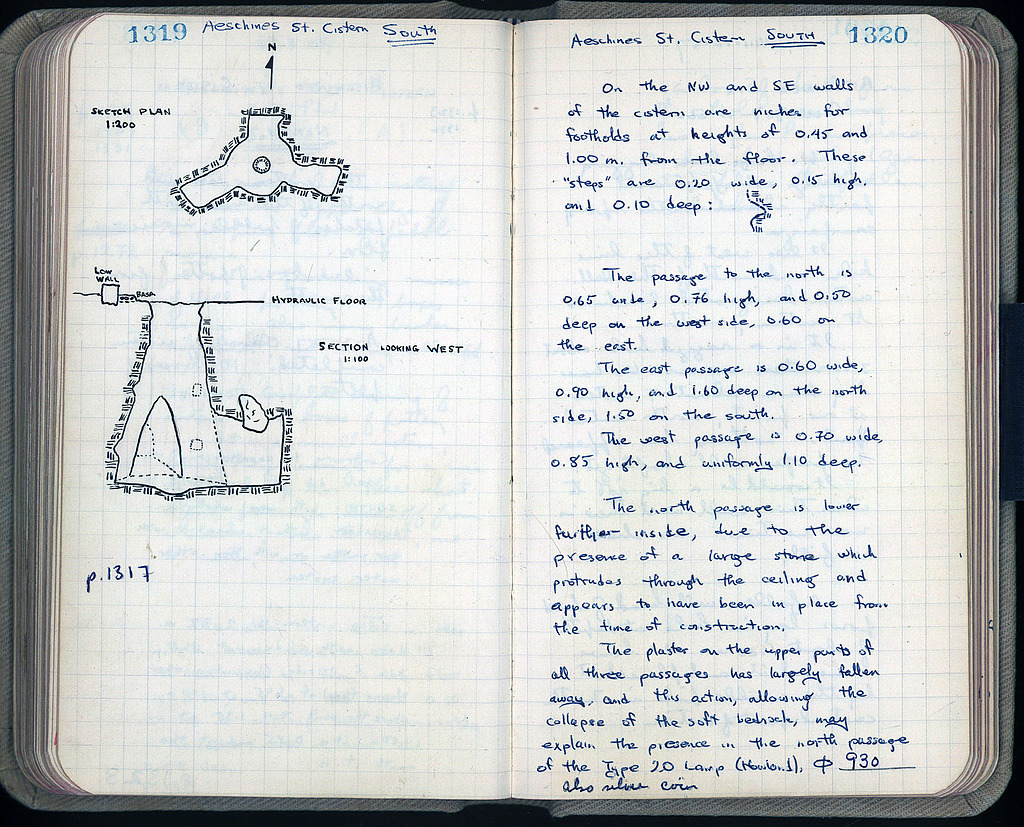 1319 Aeschines St. Cistern South
N
SKETCH PLAN
1:200
LOW
WALL
BASA
HYDRAULIC FLOOR
SECTION LOOKING WEST
1:100
p.1317
Aeschines St. Cistern SOUTH 1320
On the NW and SE walls
of the cistern are niches for
footholds at heights of 0.45 and
1.00 m. from the floor. These
"steps" are 0.20 wide, 0.15 high,
and 0.10 deep:
The passage to the north is
0.65 wide, 0.76 high, and 0.50
deep on the west side, 0.60 on
the east.
The east passage is 0.60 wide,
0.90 high, and 1.60 deep on the north
side, 1.50 on the south.
The west passage is 0.70 wide,
0.85 high, and uniformly 1.10 deep.
The north passage is lower
further inside, due to the
presence of a large stone which
protrudes through the ceiling and
appears to have been in place from
the time of construction.
The plaster on the upper parts of
all three passages has largely fallen
away, and this action, allowing the
collapse of the soft bedrock, may
explain the presence in the north passage
of the Type 20 Lamp (Howland), Φ 930
also silver coin